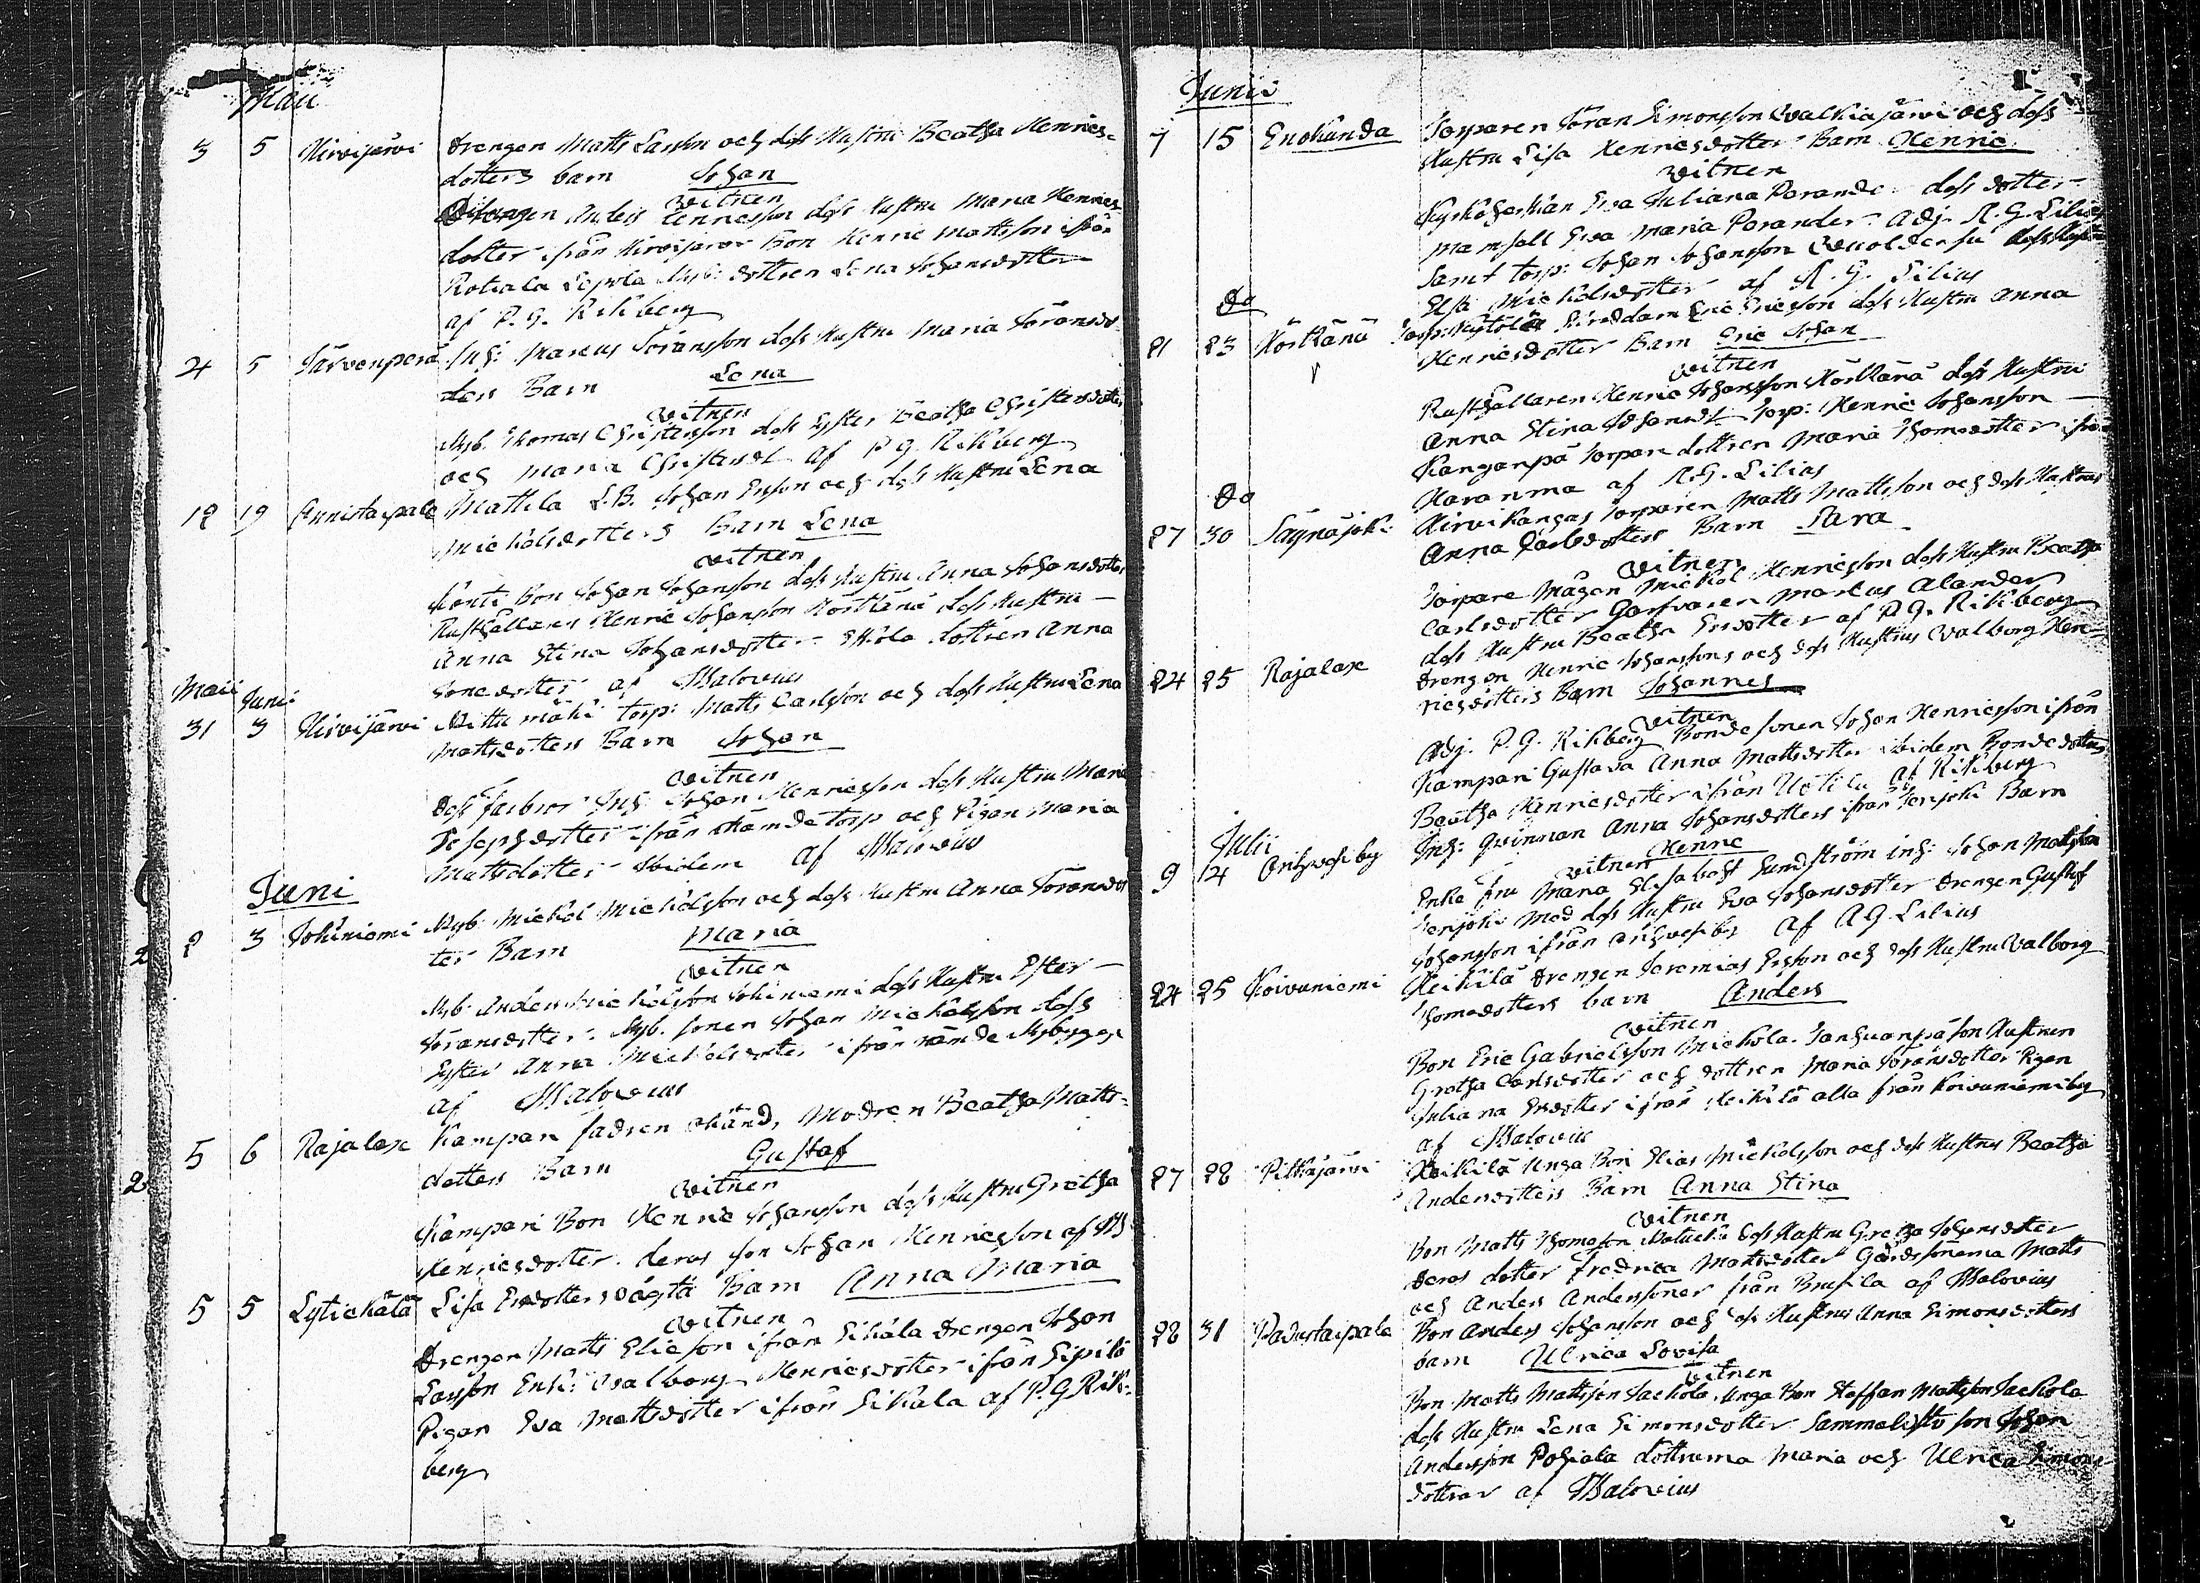 Maii
3 5 Hirvijärvi Drengen Matts Larsson och dess Hustru Beatha Henrics-
dotters barn Johan
Witnen
Anders Henricsson dess Hustru Maria Henrics
dotter ifrån Hirvijärvi Bon Henric Mattsson ifrån
Lepola Nyb: dottren Lena Johansdotter
af P. G. Rikberg
4 5 Järvenperä Inh: Marcus Jöransson dess Hustru Maria Jöransdot
ters Barn Lena
Witnen
Nyb. Thomas Christersson dess Syster Beatha Christersdotter
och Maria Christersdr af P G. Rikberg
18 19 Annistaipale Mattila L.B. Johan Ersson och dess Hustru Lena
Mickelsdotters Barn Lena
Witnen
Bon Johan Johansson dess Hustru Anna Johansdotter
Rusthållaren Henric Johansson Körtkänä dess Hustru
Anna Stina Johansdotter dottren Anna
af Malovius
Maii Junii
31 3 Hirvijärvi Torp: Matts Carlsson och dess Hustru Lena
Mattsdotters Barn Johan
Witnen
Dess farbror Inh: Johan Henricsson dess Hustru Maria
Josephsdotter ifrån nämde torp och Pigan Maria
Mattsdotter ibidem af Malovius
Juni
2 3 Jokiniemi Nyb. Mickel Mickelsson och dess Hustru Anna Jöransdot
ter Barn Maria
Witnen
Nyb: Anders Mickelsson Jokiniemi dess Hustru Ester
Jöransdotter. Nyb. sonen Johan Mickelsson dess
Syster Anna Mickelsdotter ifrån nämde Nybygge
af Malovius
5 6 Rajalax Kampari fadren okänd, Modren Beatha Matts-
dotters Barn Gustaf
Witnen
Kampari Bon Henric Johansson dess Hustru Gretha
Henricsdotter. deras son Johan Henricsson af
5 5 Lytickälä Lisa Ersdotters oägta Barn Anna Maria
Witnen
Drengen Matts Eliesson ifrån Sikala Drengen Johan
Larsson Enk: Walborg Henricsdotter ifrån Sipilä
Pigan Eva Mattsdotter ifrån Sikala af P.G Rik-
berg
Junii
7 15 Enokunda Torparen Jöran Simonsson Walkiajärvi och dess
Hustru Lisa Henricsdotter Barn Henric
Witnen
Eva Juliana Porander dess dotter
Mamsell Eva Maria Porander. Adj. A. G. Lilius
samt torp: Johan Johansson dess Hustru
Elsa Mickelsdotter af A. G. Lilius
Do
21 23 Körtkänä Torp: Eric Ericsson dess Hustru Anna
Henricsdotter Barn Eric Johan
Witnen
Rusthållaren Henric Johansson Körtkänä dess Hustru
Anna Stina Johansdr: Torp: Henric Johansson
Kanganpä torpare dottren Maria Thomasdotter ifrån
af A.G. Lilius
Do
27 30 Säynäjoki Hirvikangas Torparen Matts Mattsson och dess Hustrus
Anna Carlsdotters Barn Sara
Witnen
Torpare Mågen Mickel Henricsson dess Hustru Beatha
Carlsdotter Garfvaren Marcus Alander
dess Hustru Beatha Ersdotter af P. G. Rikberg
24 25 Rajalax Drengen Henric Johanssons och dess Hustrus Walborg Hen-
ricsdotters Barn Johannes
Witnen
Adj. P. G. Rikberg Bondesonen Johan Henricsson ifrån
Kampari Gustava Anna Mattsdotter ibidem Bondedottren
Beatha Henricsdotter ifrån Uotila af Rikberg
Julii
9 14 Inh: Qvinnan Anna Johansdotters ifrån Barn
Henric
Witnen
Enke fru Maria Elisabeth Sundström inh: Johan Mattsson
med dess Hustru Eva Johansdotter Drengen Gustaf
Johansson ifrån af A G. Lilius
24 25 Koivuniemi Heikilä Drengen Jeremias Ersson och dess Hustru Walborg
Thomasdotters barn Anders
Witnen
Bon Eric Gabrielsson Mickola. Hustrun
Gretha Carlsdotter och dottren Maria Jöransdotter Pigan
Juliana Ersdotter ifrån Heikilä alla från Koivuniemi by
af Malovius
27 28 Pitkäjärvi Heikilä Unga Bon Elias Mickelsson och dess Hustrus Beatha
Andersdotters Barn Anna Stina
Witnen
Bon Matts Thomasson dess Hustru Gretha Johansdotter
deras dotter Fredrica Mattsdotter Matts
och Anders Anderssöner från af Malovius
28 31 Padustaipale Bon Anders Johansson och dess Hustrus Anna Simonsdotters
barn Ulrica Lovisa
Witnen
Bon Matts Mattsson Jackola. Unga Bon Staffan Mattsson Jackola
dess Hustru Lena Simonsdotter Sammalisto son Johan
Andersson Pohiala döttrarna Maria och Ulrica Simons
döttrar af Malovius